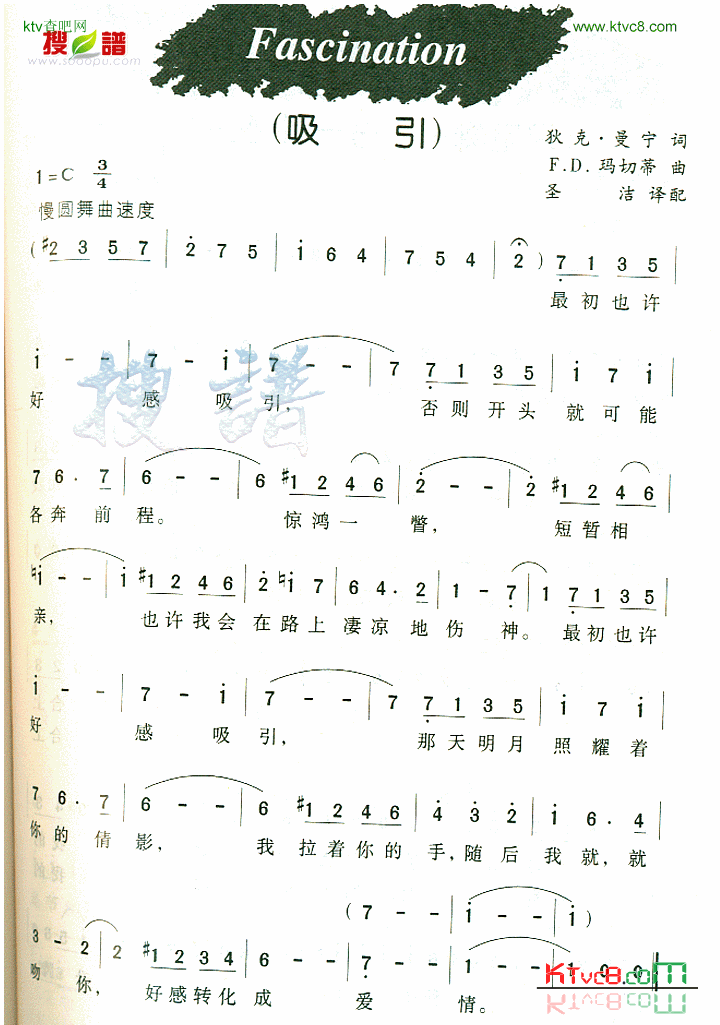 ktv杳吧网
www.ktvc8.com
搜谱
www.sooopu.com
Fascination
(吸 引)
狄克·曼宁 词
1=C 3/4
F.D. 玛切蒂 曲
圣 洁 译配
慢圆舞曲速度
(#2 3 5 7 | 2 7 5 | i 6 4 | 7 5 4 | 2) 7 1 3 5 |
最初也许
i - - | 7 - i | 7 - - | 7 7 1 3 5 | i 7 i |
好 感 吸 引, 否则开头 就可能
7 6. 7 | 6 - - | 6 #1 2 4 6 | 2 - - | 2 #1 2 4 6 |
各奔 前 程。 惊鸿一 瞥, 短暂相
♮i - - | i #1 2 4 6 | 2 ♮i 7 | 6 4. 2 | 1 - 7 | 1 7 1 3 5 |
亲, 也许我会 在路上 凄凉 地 伤 神。 最初也许
i - - | 7 - i | 7 - - | 7 7 1 3 5 | i 7 i |
好 感 吸 引, 那天明月 照耀着
7 6. 7 | 6 - - | 6 #1 2 4 6 | 4 3 2 | 1 6. 4 |
你的 倩 影, 我 拉着你的 手,随后 我就,就
(7 - - | i - - | i)
3 - 2 | 2 #1 2 3 4 | 6 - - | 7 - - | 1 - - | 1 0 0 ‖
吻 你, 好感转化 成 爱 情。
KTvc8.com